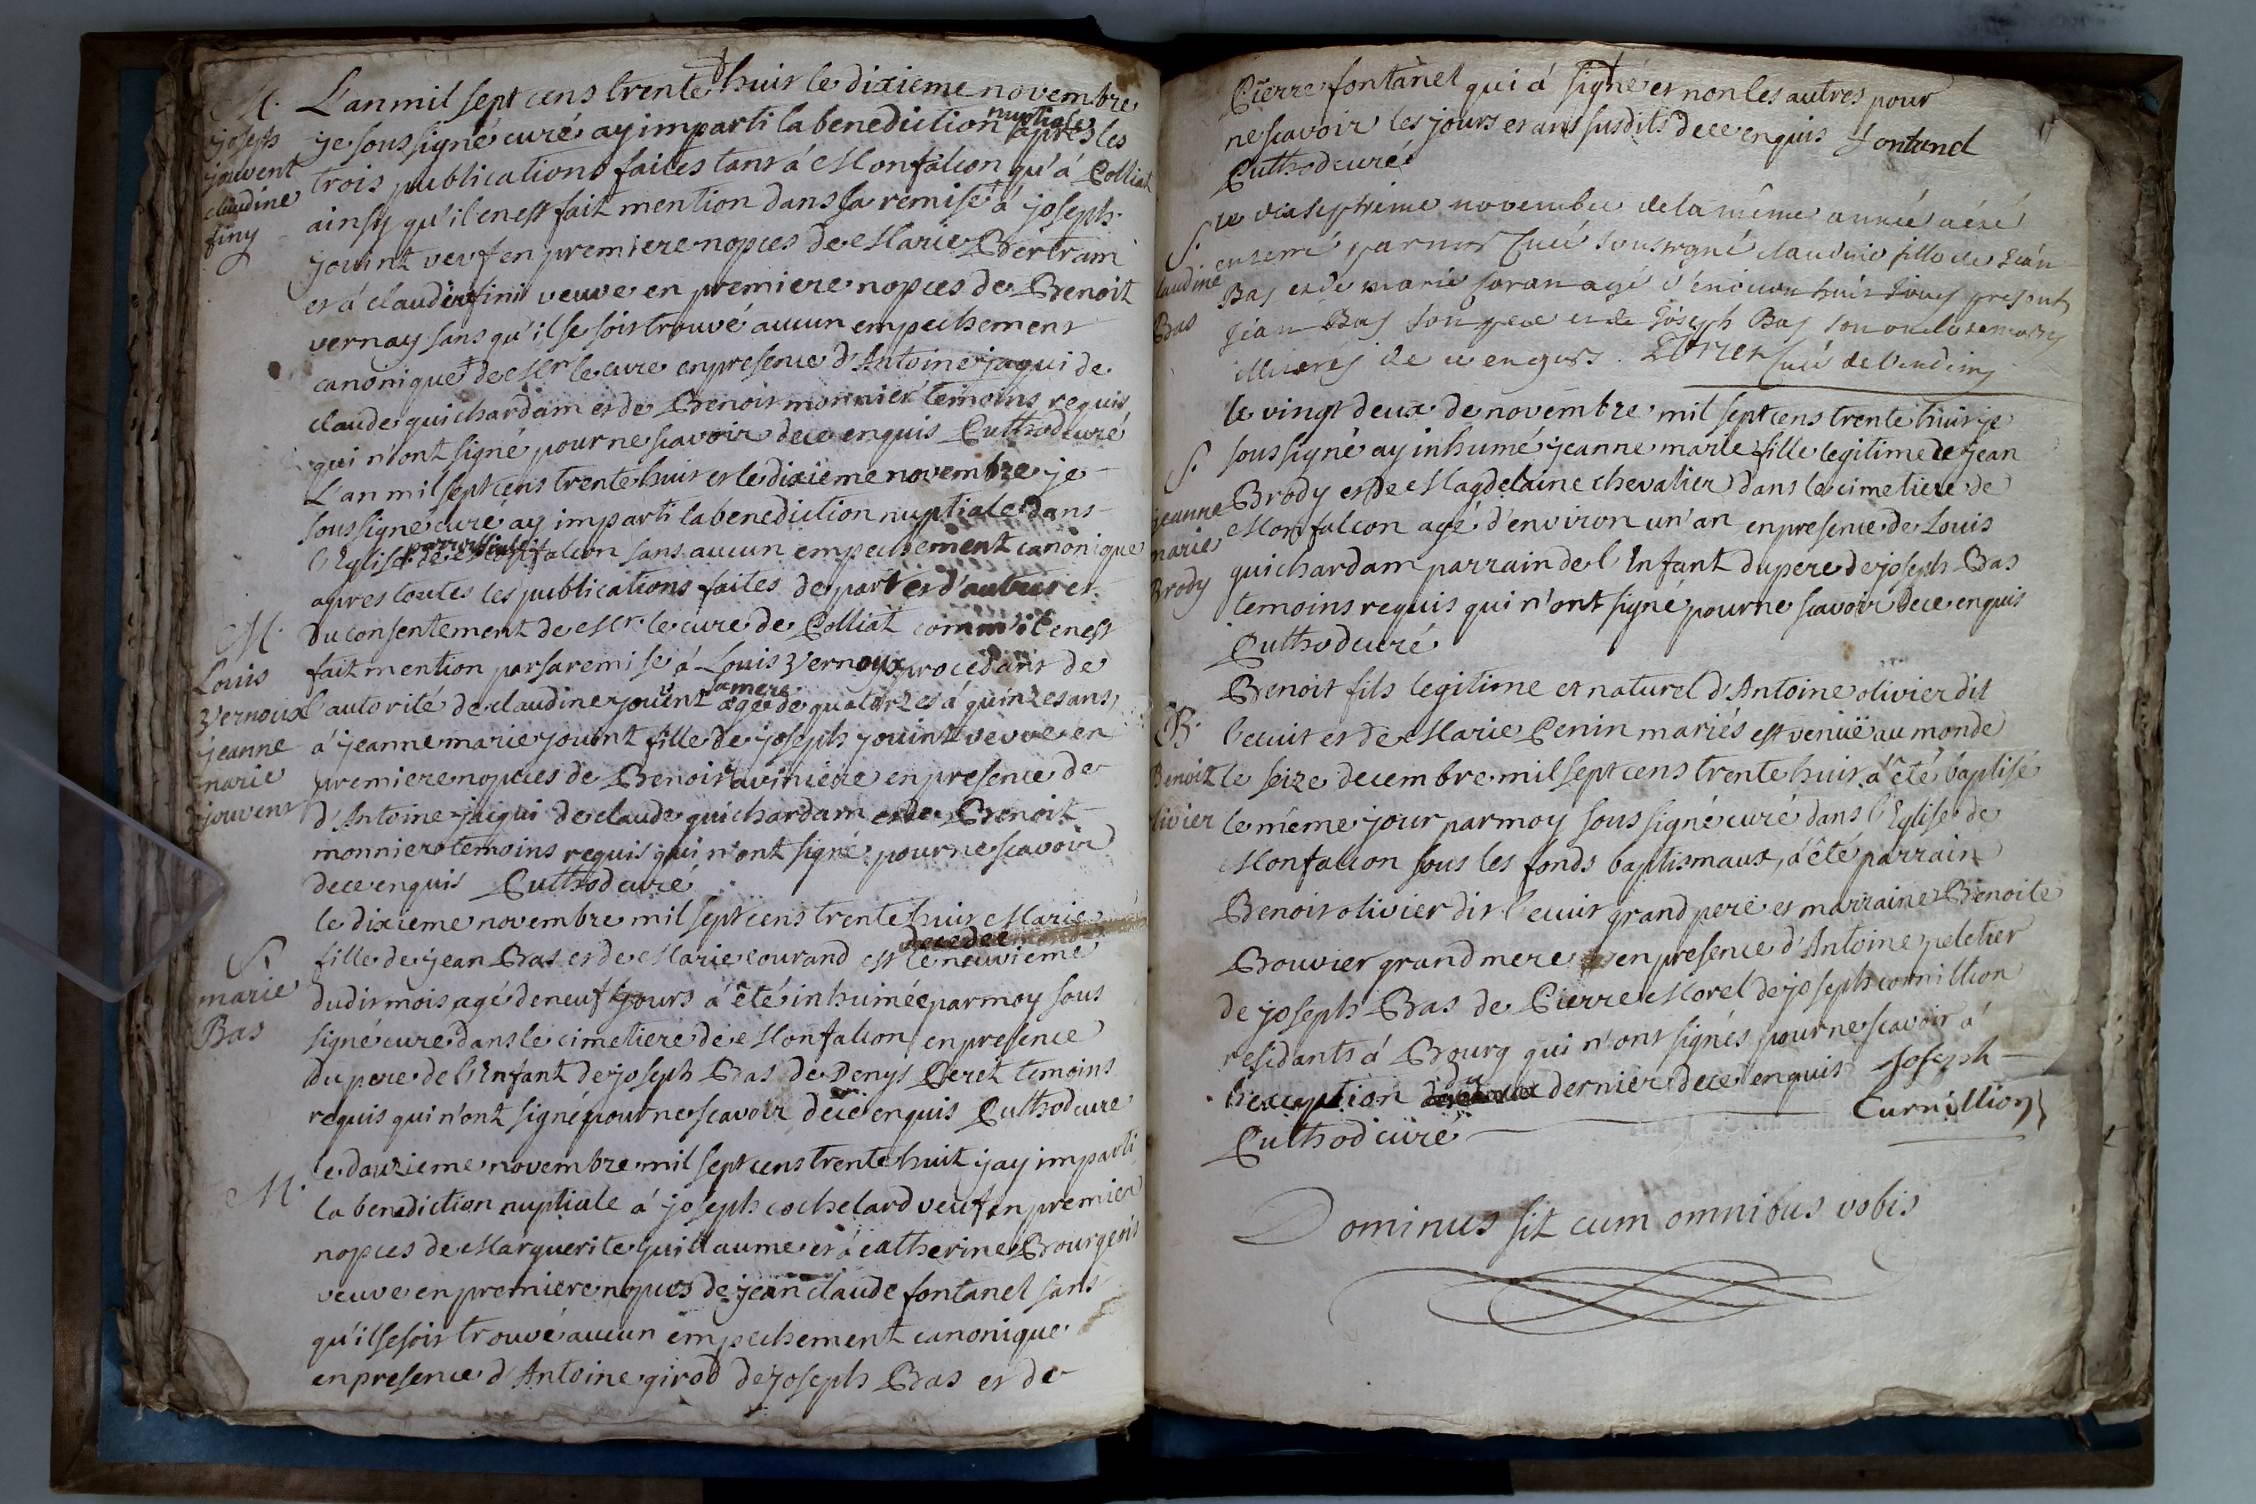 M.
joseph
jouvent
claudine
finy
L'an mil sept cens trente huit le dixieme novembre
je soussigné curé ay imparti la benediction nuptiale apres les
trois publications faites tant á Monfalcon qu'á Polliat
ainsy qu'il en est fait mention dans sa remise á joseph
jouint veuf en premiere nopces de Marie Bertram
et á claudine fini veuve en premiere nopces de Benoit
vernay sans qu'il se soit trouvé aucun empechement
canonique de Mr le cure en presence d'Antoine jaqui de
claude quichardam et de Benoit monnier temoins requis
qui n'ont signé pour ne scavoir de ce enquis Cuthod curé
M.
Louis
Vernoux
jeanne
marie
jouvent
L'an mil sept cens trente huit et le dixieme novembre je
soussigné curé ay imparti la benediction nuptiale dans
l'Eglise parroissiale de Monfalcon sans aucun empechement canonique
apres toutes les publications faites de part et d'autre et
du consentement de Mr le cure de Polliat comm'il en est
fait mention par sa remise á Louis Vernoux procedant de
l'autorité de claudine jouint sa mere agé de quatorzes á quinzes ans,
á jeanne marie jouint fille de joseph jouint veuve en
premiere nopces de Benoit aviniere en presence de
d'Antoine jaqui de claude quichardam et de Benoit
monnier temoins requis qui n'ont signé pour ne scavoir
de ce enquis Cuthod curé
S.
marie
Bas
le dixieme novembre mil sept cens trente huit Marie
fille de jean Bas et de Marie courand est decedée le neuvieme
dudit mois agé de neuf jours á été inhumée par moy sous
signé cure dans le cimetiere de Monfalcon en presence
du pere de l'Enfant de joseph Bas de Denys Peret temoins
requis qui n'ont signé pour ne scavoir de ce enquis Cuthod cure
M.
le douzieme novembre mil sept cens trente huit j'ay imparti
la benediction nuptiale á joseph cochelard veuf en premier
nopces de Marguerite Guillaume et á catherine Bourgeois
veuve en premiere nopces de jean claude fontanel sans
qu'il se soit trouvé aucun empechement canonique
en presence d'Antoine girod de joseph Bas et de
Pierre fontanel qui á signé et non les autres pour
ne scavoir les jours et ans susdits de ce enquis fontanel
Cuthod curé
S.
claudine
Bas
le dixseptieme novembre de la même année a été
enterré par nous curé soussigné claudine fille de Jean
Bas et de marie agé d'environ huit jours present
Jean Bas son pere et de Joseph Bas son oncle
illiterés de ce enquis. curé de Vandeins
S.
jeanne
marie
Brody
le vingt deux de novembre mil sept cens trente huit je
soussigné ay inhumé jeanne marie fille legitime de jean
Brody et de Magdelaine chevalier dans le cimetiere de
Monfalcon agé d'environ un'an en presence de Louis
quichardam parrain de l'Enfant du pere de joseph Bas
temoins requis qui n'ont signé pour ne scavoir de ce enquis
Cuthod curé
B.
Benoit
olivier
Benoit fils legitime et naturel d'Antoine olivier dit
l'ecuit et de Marie Penin mariés est venuë au monde
le seize decembre mil sept cens trente huit á été baptisé
le même jour par moy sous signé curé dans l'Eglise de
Monfalcon sous les fonds baptismaux, á été parrain
Benoit olivier dit l'ecuit grand pere et marraine Benoite
Bouvier grand mere en presence d'Antoine peletier
de joseph Bas de Pierre Morel de joseph cornillion
residants á Bourg qui n'ont signés pour ne scavoir á
l'exception du dernier de ce enquis Joseph
Curnillion
Cuthod curé
Dominus sit cum omnibus vobis